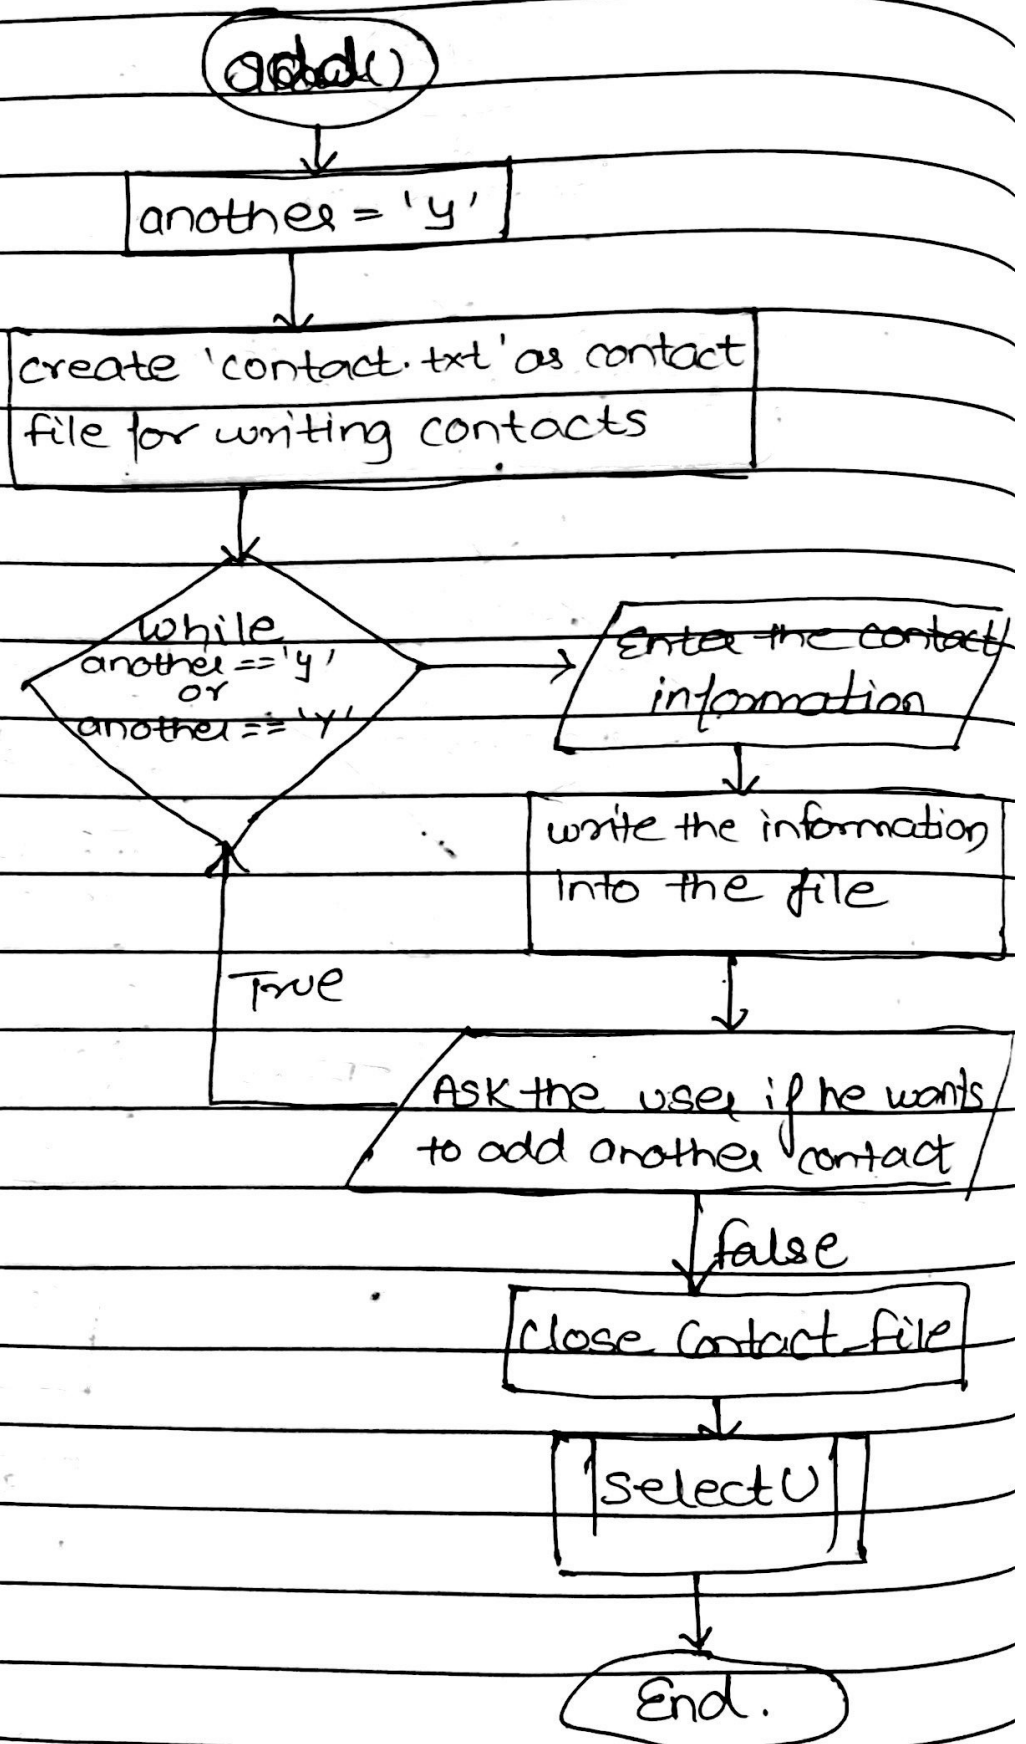 another = 'y'
create 'contact.txt' as contact
file for writing contacts
while
another == 'y'
or
another == 'Y'
Enter the contact
information
write the information
into the file
True
Ask the user if he wants
to add another contact
false
close contact_file
select()
End.